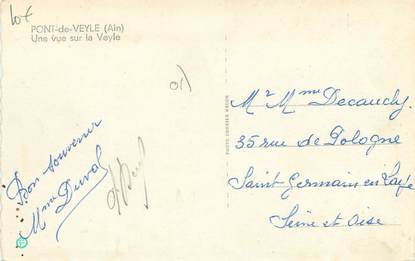 10€
PONT-de-VEYLE (Ain)
Une vue sur la Veyle
01)
Bon souvenir
Mme Duval
Mr Mme Decauchy
35 rue de Pologne
Saint Germain en Laye
Seine et Oise